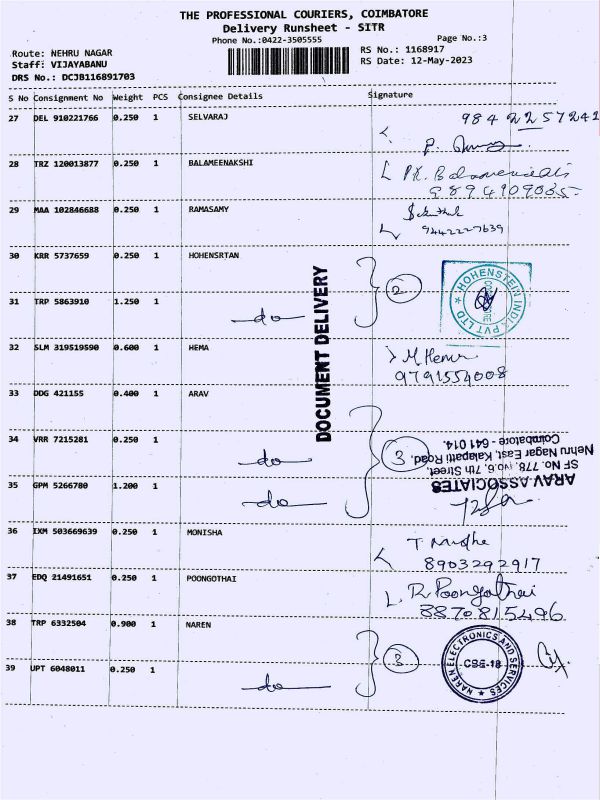 THE PROFESSIONAL COURIERS, COIMBATORE
Delivery Runsheet - SITR
Phone No.:0422-3505555 Page No.:3
Route: NEHRU NAGAR RS No.: 1168917
Staff: VIJAYABANU RS Date: 12-May-2023
DRS No.: DCJB116891703
S No Consignment No Weight PCS Consignee Details Signature
27 DEL 910221766 0.250 1 SELVARAJ 984 22 57241
28 TRZ 120013877 0.250 1 BALAMEENAKSHI P.K. Balameenakshi
9894909065
29 MAA 102846688 0.250 1 RAMASAMY
9442227639
30 KRR 5737659 0.250 1 HOHENSRTAN 2
HOHENSTEIN INDIA PVT LTD
31 TRP 5863910 1.250 1 do
DOCUMENT DELIVERY
32 SLM 319519590 0.600 1 HEMA M Hema
9791554008
33 DDG 421155 0.400 1 ARAV
34 VRR 7215281 0.250 1 do 3
ARAV ASSOCIATES
SF No. 778, No.6, 7th Street,
Nehru Nagar East, Kalapatti Road,
Coimbatore - 641 014.
35 GPM 5266780 1.200 1 do
36 IXM 503669639 0.250 1 MONISHA
8903292917
37 EDQ 21491651 0.250 1 POONGOTHAI R Poongothai
8870815496
38 TRP 6332504 0.900 1 NAREN 3
NAREN ELECTRONICS AND SERVICES
CBE-18
39 UPT 6048011 0.250 1 do